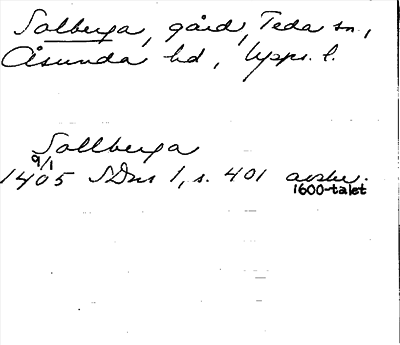 Solberga, gård, Teda sn.,
Åsunda hd, Upps. l.
Sollberga
9/1
1405 SDns 1, s. 401 avskr.
1600-talet